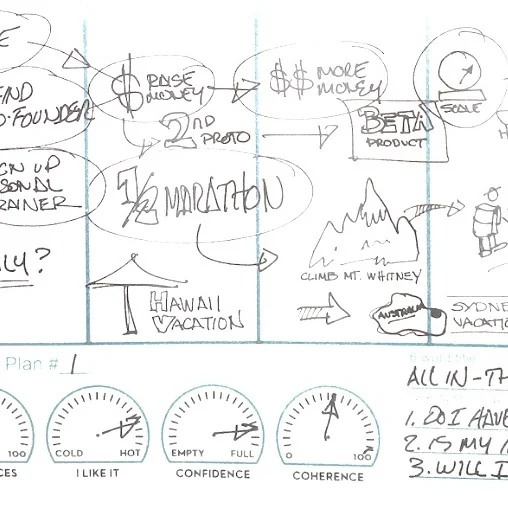 E
IND
O-FOUNDER
GN UP
SONAL
RAINER
LY?
$ RAISE
MONEY
2ND
PROTO
1/2 MARATHON
HAWAII
VACATION
$$ MORE
MONEY
BETA
PRODUCT
CLIMB MT. WHITNEY
AUSTRALIA
SCALE
H
SYDNE
VACATIO
Plan # 1
100
CES
COLD HOT
I LIKE IT
EMPTY FULL
CONFIDENCE
0 100
COHERENCE
ALL IN - TH
1. DO I HAVE
2. IS MY I
3. WILL I